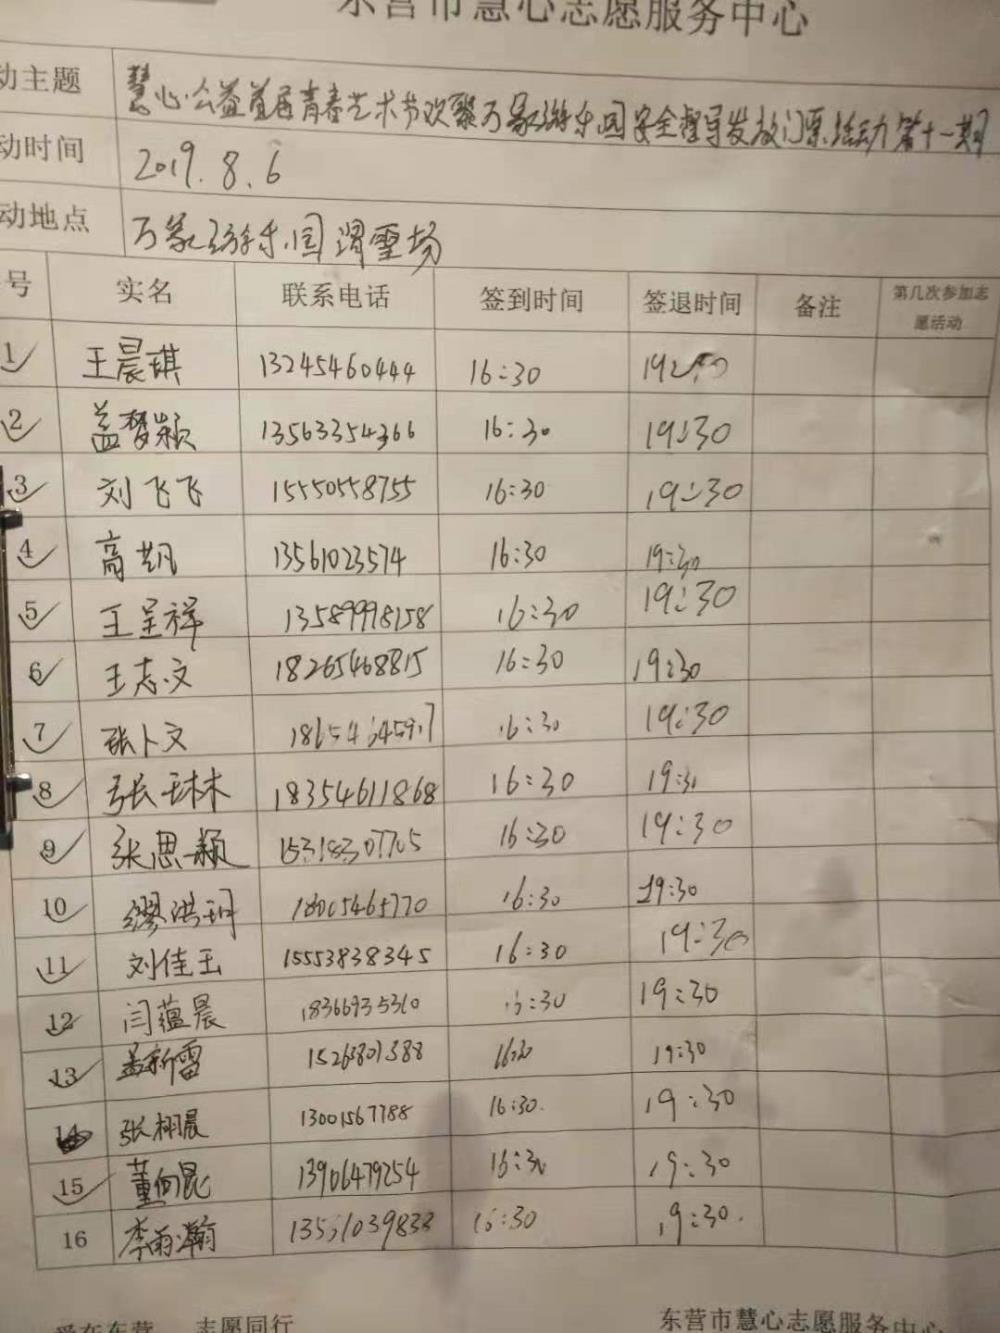 东营市慧心志愿服务中心
动主题 慧心公益首届青春艺术节欢聚万象游乐园安全督导发放门票活动第十一期
动时间 2019.8.6
动地点 万象游乐园滑雪场
号 实名 联系电话 签到时间 签退时间 备注 第几次参加志愿活动
1 王晨琪 13245460444 16:30
2 盖梦颖 13563354366 16:30 19:30
3 刘飞飞 15550558755 16:30 19:30
4 高 13561023574 16:30 19:30
5 王呈祥 13589998158 16:30 19:30
6 王志文 18265468815 16:30 19:30
7 张卜文 16:30 19:30
8 张琳 18354611868 16:30 19:30
9 张思颖 15318307705 16:30 19:30
10 缪洪玥 18005465770 16:30 19:30
11 刘佳玉 15553838345 16:30 19:30
12 闫蕴晨 18366935310 16:30 19:30
13 孟新雷 15263801388 16:30 19:30
14 张栩晨 13001567788 16:30 19:30
15 董向昆 13906479254 16:30 19:30
16 李雨瀚 13561039833 16:30 19:30
爱在东营 志愿同行 东营市慧心志愿服务中心